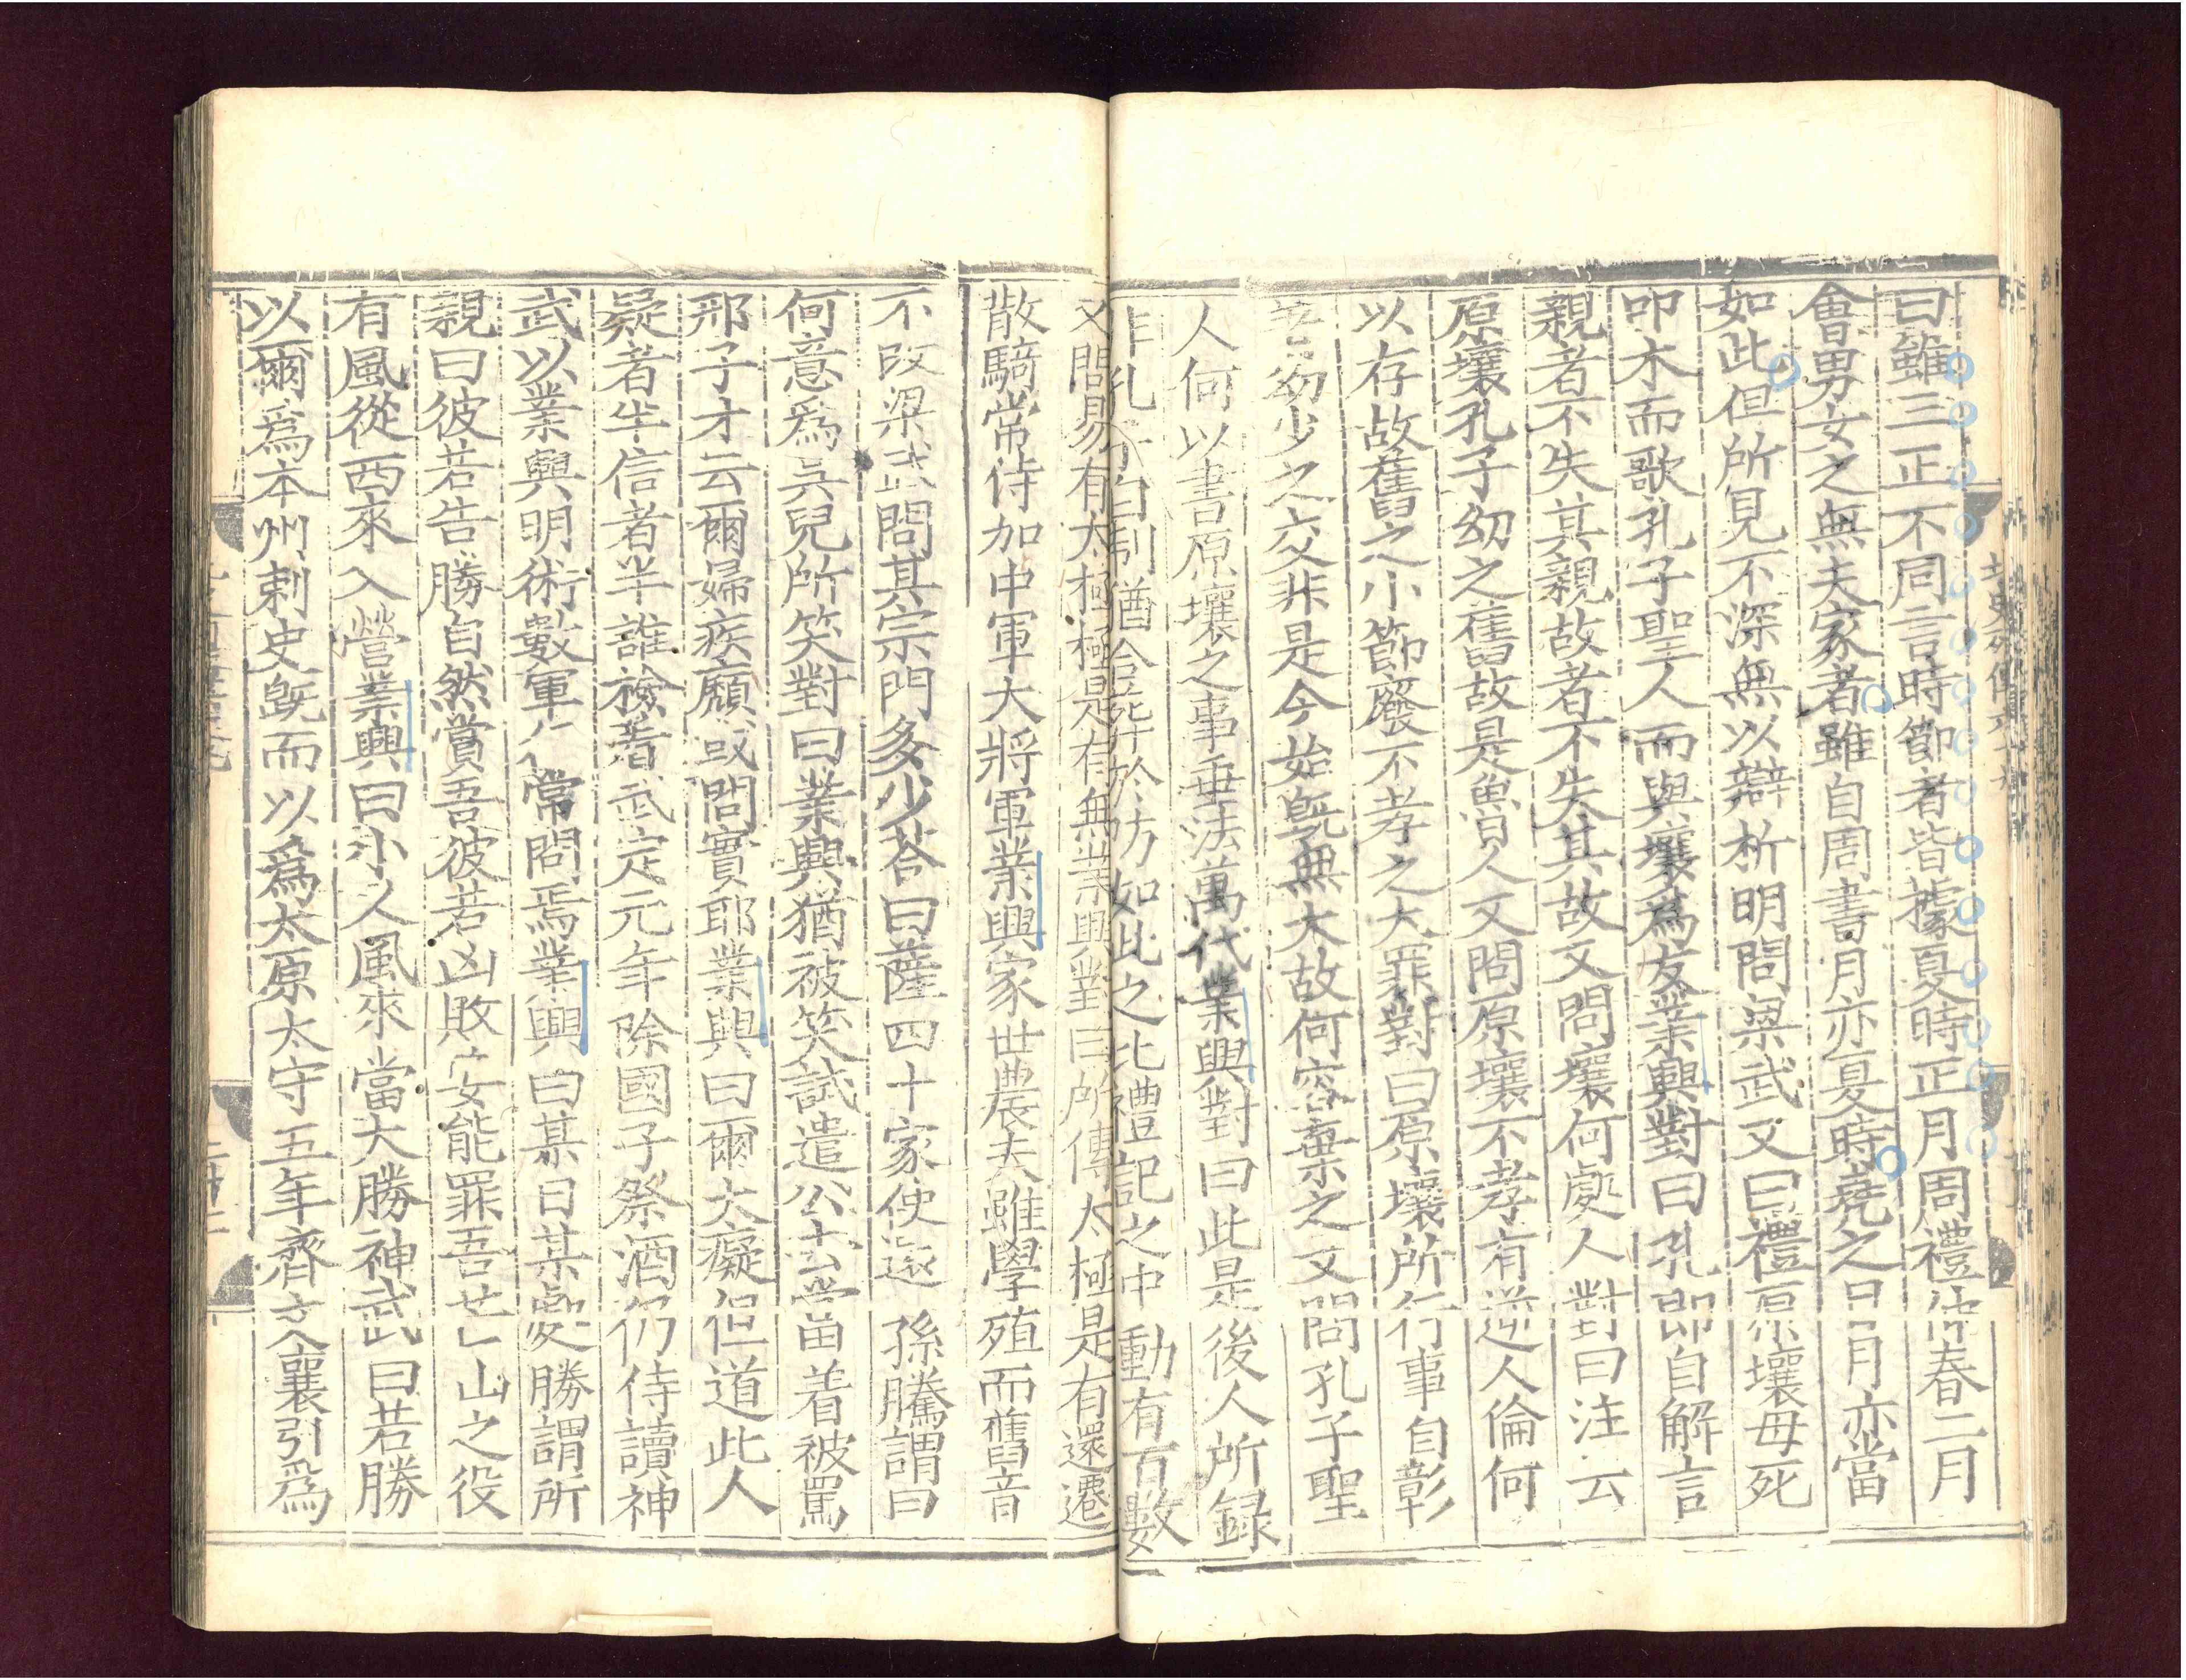 曰雖三正不同言時節者皆據夏時正月周禮仲春二月
會男女之無夫家者雖自周書月亦夏時堯之日月亦當
如此但所見不深無以辯析明問梁武又曰禮原壤母死
叩木而歌孔子聖人而與壤爲友業興對曰孔即自解言
親者不失其親故者不失其故又問壤何處人對曰注云
原壤孔子幼之舊故是魯人又問原壤不孝有逆人倫何
以存故舊之小節廢不孝之大罪對曰原壤所行事自彰
幼少之交非是今始旣無大故何容棄之又問孔子聖
人何以書原壤之事垂法萬代業興對曰此是後人所録
非孔子自制猶合葬於防如此之比禮記之中動有百數
又問易有太極極是有無業興對曰所傳太極是有還遷
散騎常侍加中軍大將軍業興家世農夫雖學殖而舊音
不改梁武問其宗門多少荅曰薩四十家使還孫騰謂曰
何意爲吳兒所笑對曰業興猶被笑試遣公去當着被罵
邢子才云爾婦疾癲或問實耶業興曰爾大癡但道此人
疑者半信者半誰檢看武定元年除國子祭酒仍侍讀神
武以業興明術數軍行常問焉業興曰某日某處勝謂所
親曰彼若告勝自然賞吾彼若凶敗安能罪吾芒山之役
有風從西來入營業興曰小人風來當大勝神武曰若勝
以爾爲本州刺史旣而以爲太原太守五年齊文襄引爲